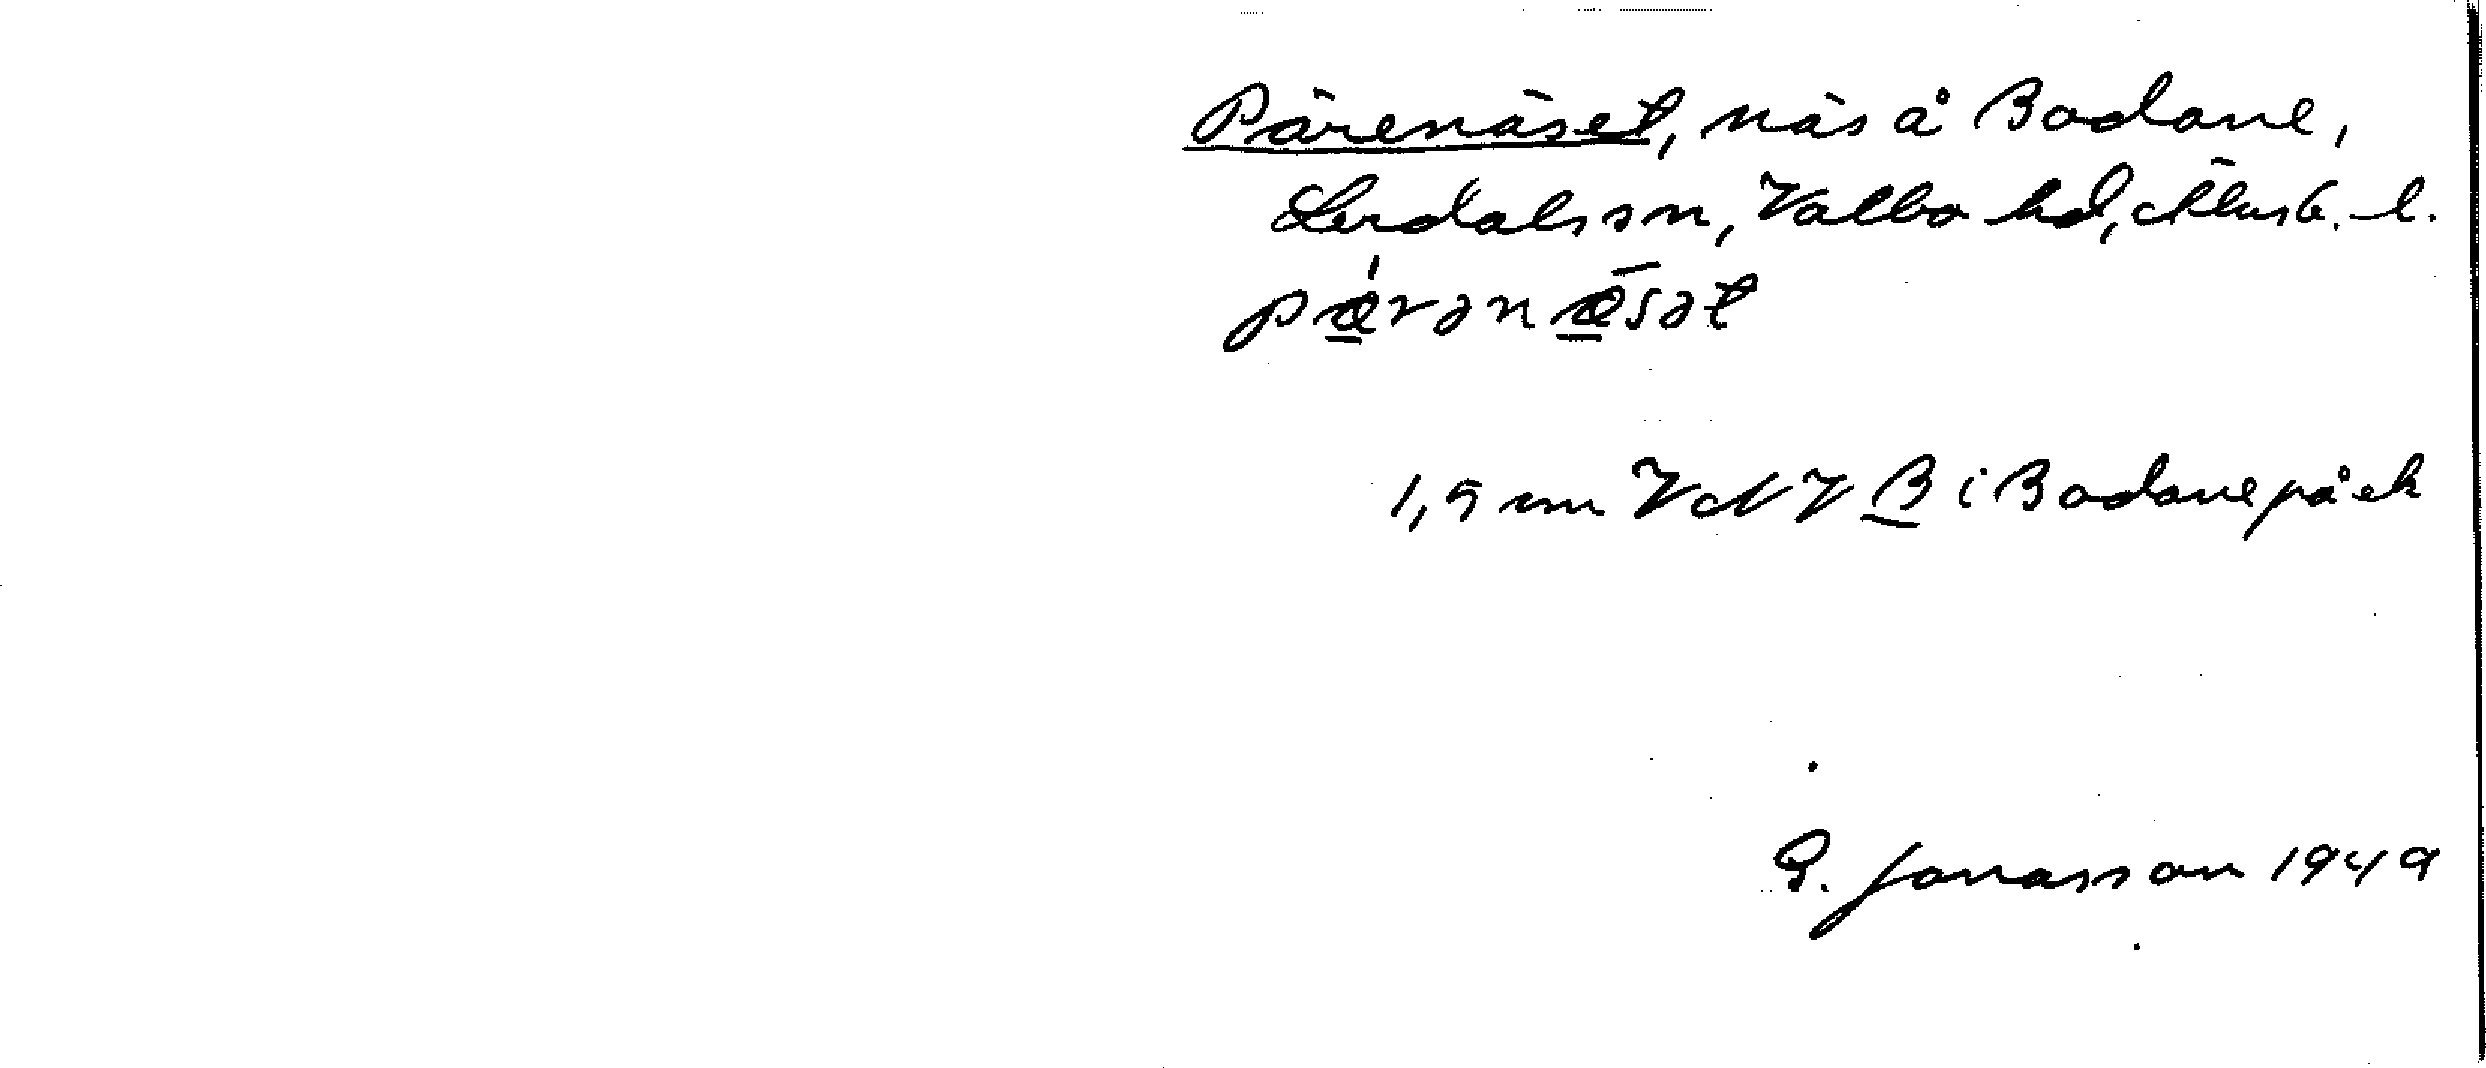 Pärenäset, näs å Bodane,
Lerdals sn, Valbo hd, Älvsb. l.
pǽ̲rənǣ̲sət
1,5 cm VNV B i Bodane på ek
G. Jonasson 1949